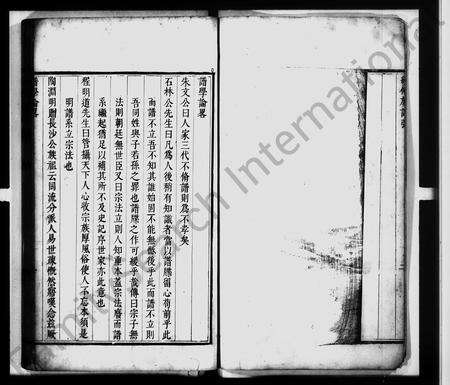 譜學論畧
朱文公曰人家三代不脩譜則爲不孝矣
石林公先生曰凡爲人後稍有知識者當以譜牒留心苟前乎此
而譜不立吾不知其誰始固不能無憾後乎此而譜不立則
吾同姓與子若孫之罪也譜牒之作可緩乎哉傳曰宗子無
法則朝廷無世臣又曰宗法立則人知重本蓋宗法廢而譜
系繼起猶足以補其所不及史記序世家亦此意也
程明道先生曰管攝天下人心收宗族厚風俗使人不忘本須是
明譜系立宗法也
陶淵明贈長沙公族祖云同流分派人易世疎慨然寤嘆念茲厥
譜學論畧
FamilySearch International